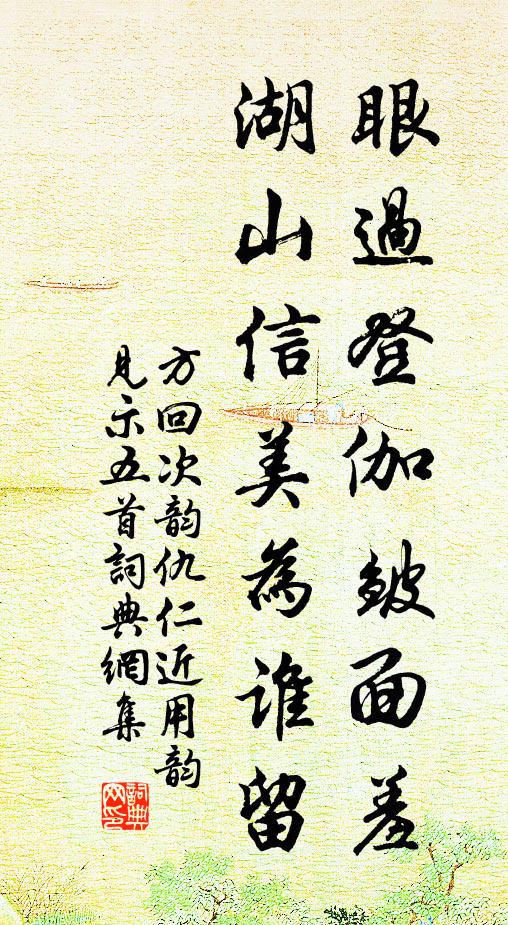 眼過登伽皺面羞
湖山信美為誰留
方回次韵仇仁近用韵
見示五首詞典網集
詞典網印